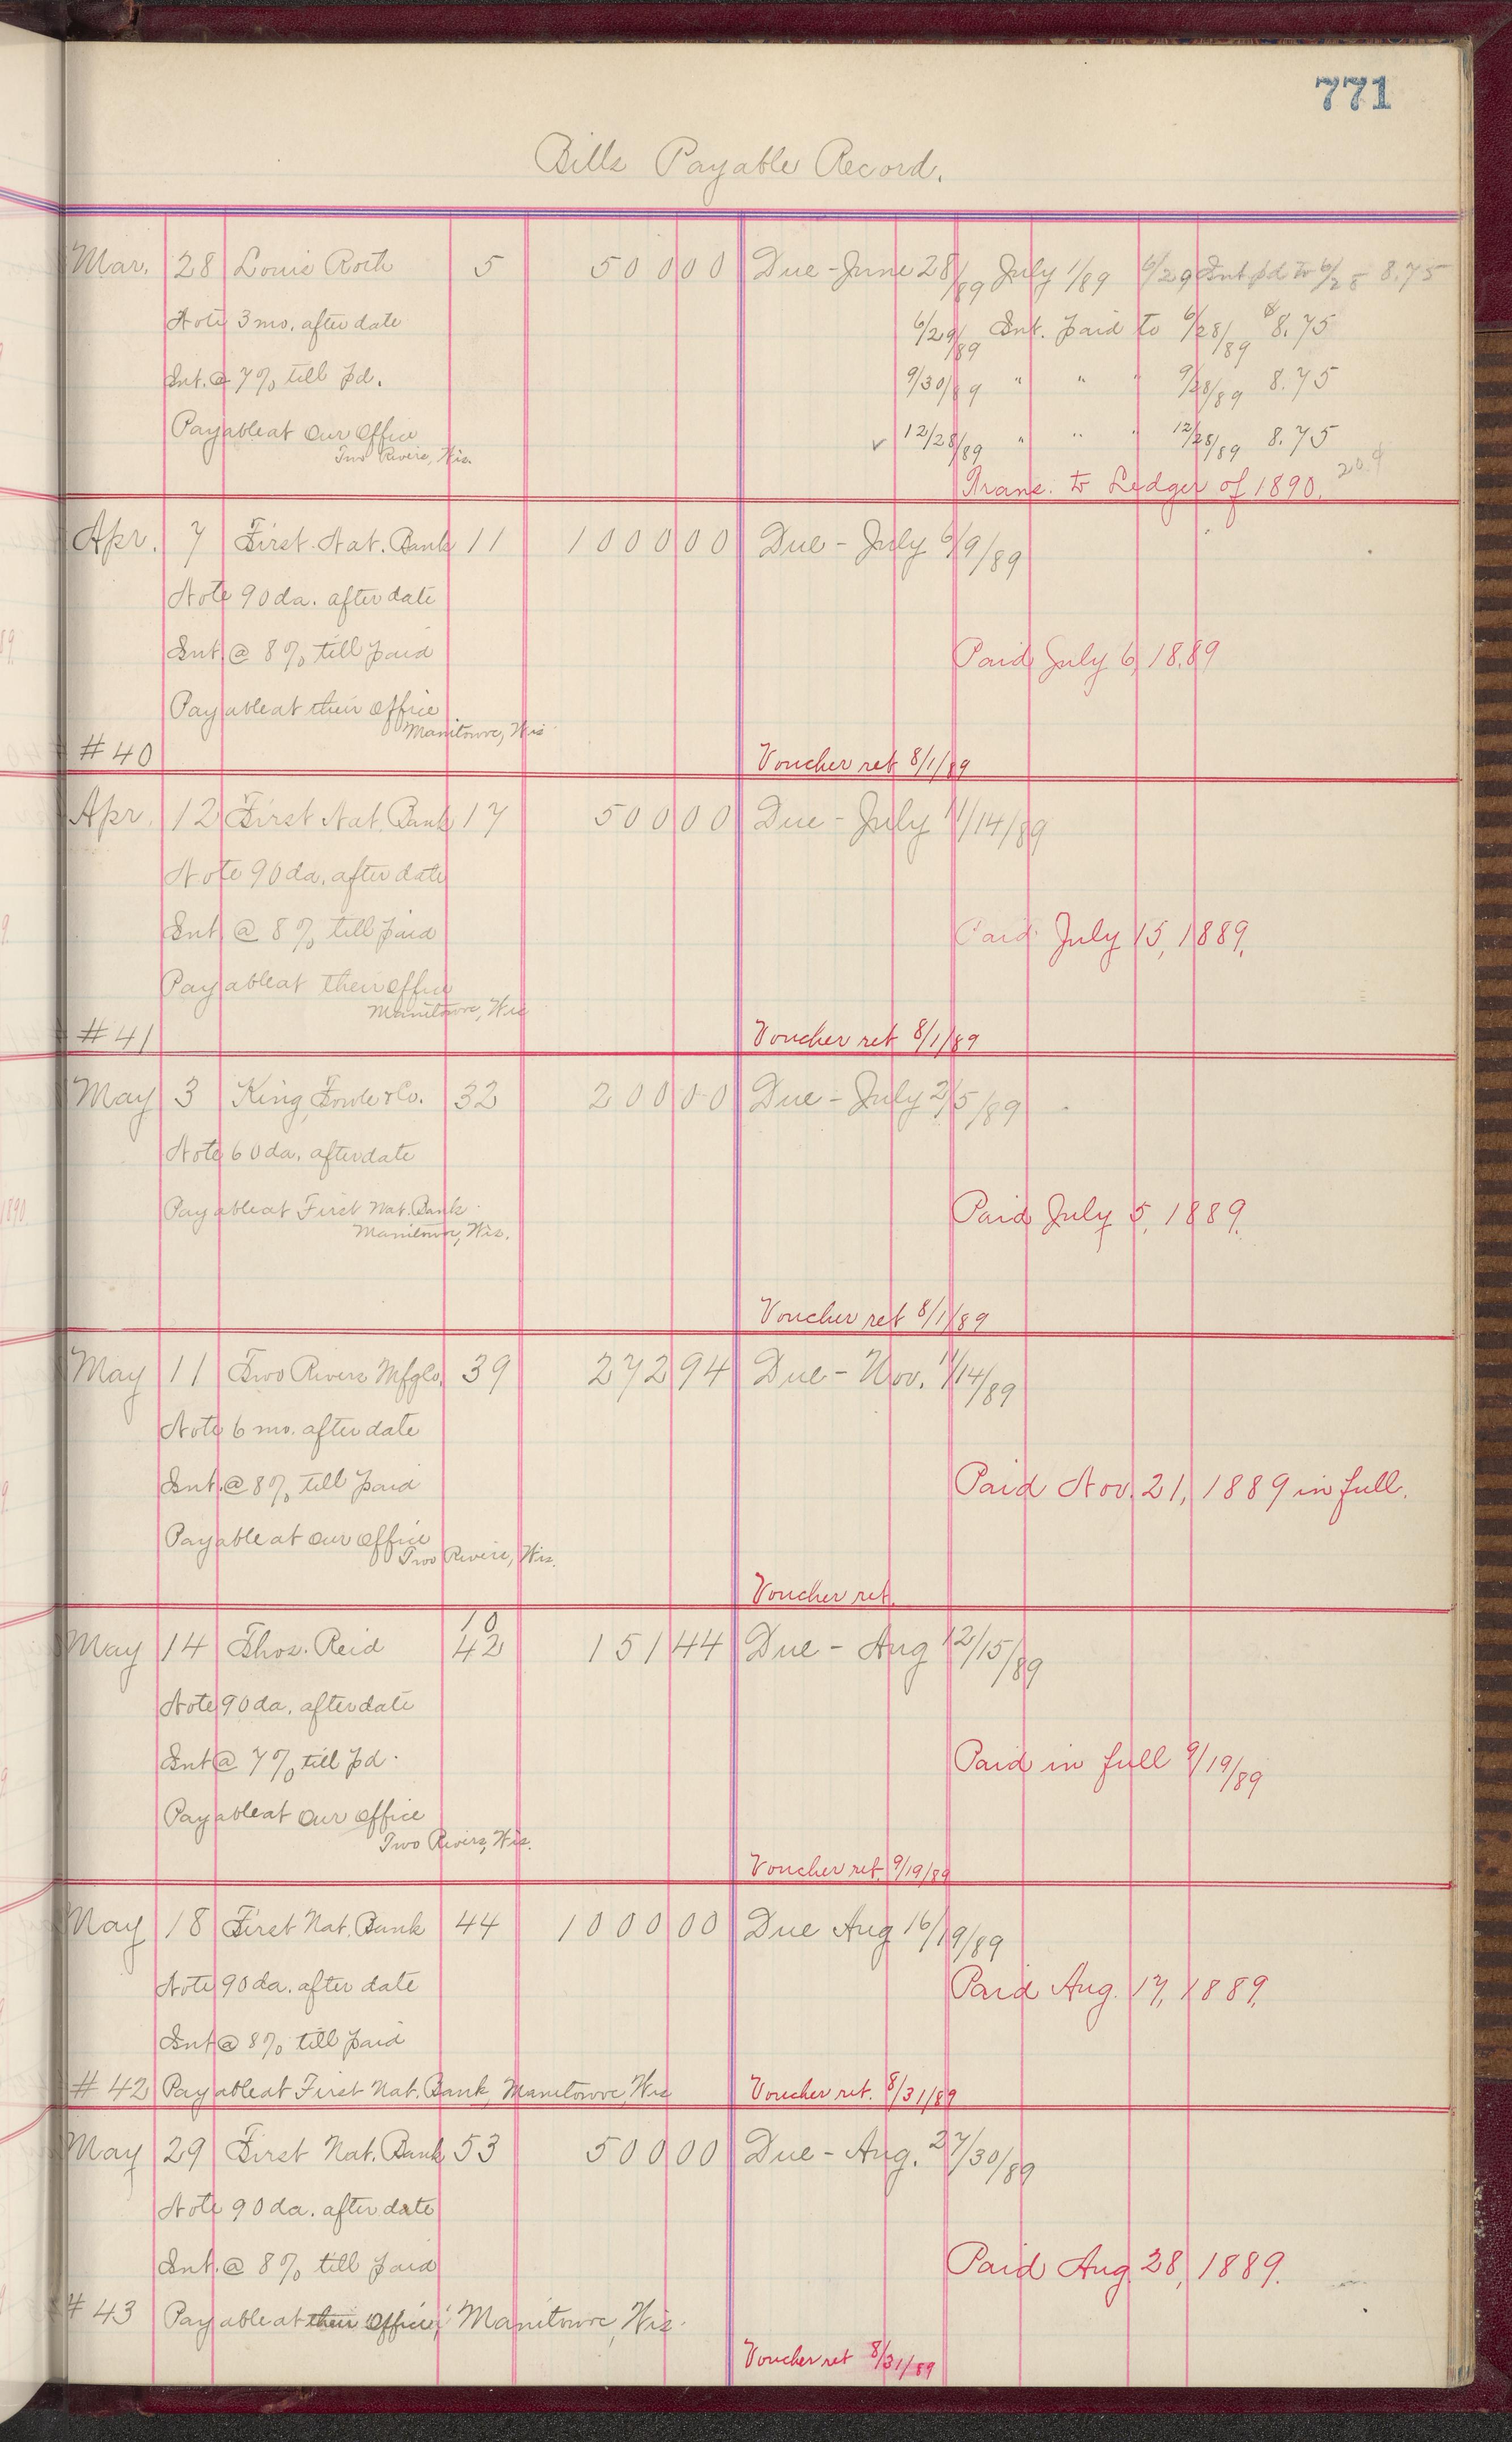 771
Bills Payable Record.
Mar. 28 Louis Roth 5 500 00 Due - June 28/89 July 1/89 6/29 Int pd to 6/28 8.75
Note 3 mo. after date 6/29/89 Int. paid to 6/28/89 $8.75
Int. @ 7% till pd. 9/30/89 " " " 9/28/89 8.75
Payable at our office ✓ 12/28/89 " " " 12/28/89 8.75
Two Rivers, Wis.
Trans. to Ledger of 1890.
Apr. 7 First. Nat. Bank 11 1000 00 Due - July 6/9/89
Note 90 da. after date
Int @ 8% till paid Paid July 6, 1889
Payable at their office
Manitowoc, Wis
#40 Voucher ret 8/1/89
Apr. 12 First Nat. Bank 17 500 00 Due - July 11/14/89
Note 90 da. after date
Int @ 8% till paid Paid July 15, 1889.
Payable at their office
Manitowoc, Wis
#41 Voucher ret 8/1/89
May 3 King, Fowle & Co. 32 200 00 Due - July 2/5/89
Note 60 da. after date
Payable at First Nat. Bank Paid July 5, 1889.
Manitowoc, Wis.
Voucher ret 8/1/89
May 11 Two Rivers Mfg Co. 39 272 94 Due - Nov. 11/14/89
Note 6 mo. after date
Int. @ 8% till paid Paid Nov. 21, 1889 in full.
Payable at our office
Two Rivers, Wis.
Voucher ret.
10
May 14 Thos. Reid 42 151 44 Due - Aug 12/15/89
Note 90 da. after date
Int @ 7% till pd. Paid in full 9/19/89
Payable at our office
Two Rivers, Wis.
Voucher ret. 9/19/89
May 18 First Nat. Bank 44 1000 00 Due Aug 16/19/89
Note 90 da. after date Paid Aug. 17, 1889.
Int @ 8% till paid
#42 Payable at First Nat. Bank, Manitowoc, Wis Voucher ret. 8/31/89
May 29 First Nat. Bank 53 500 00 Due - Aug. 27/30/89
Note 90 da. after date
Int. @ 8% till paid Paid Aug 28, 1889.
#43 Payable at their office, Manitowoc, Wis.
Voucher ret 8/31/89